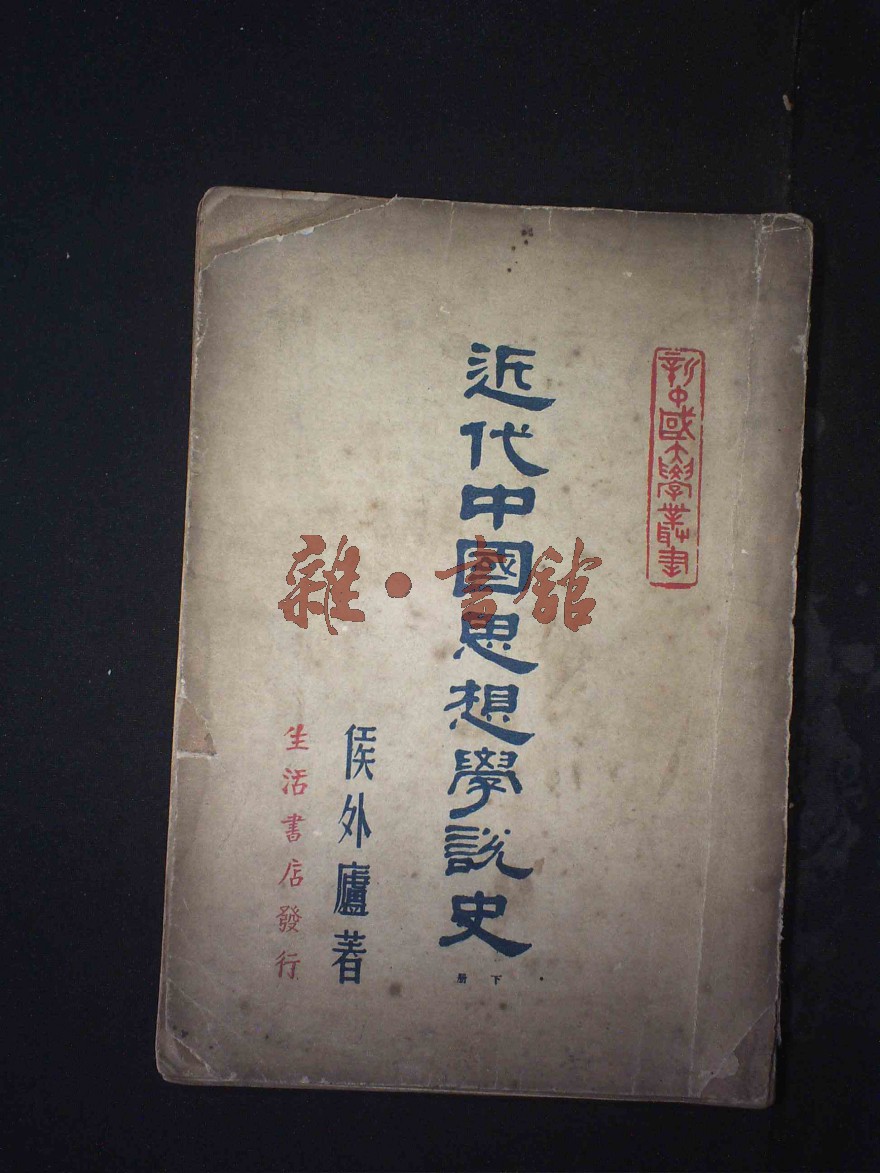 新中國大學叢書
近代中國思想學說史
下册
侯外廬著
生活書店發行
雜·書館